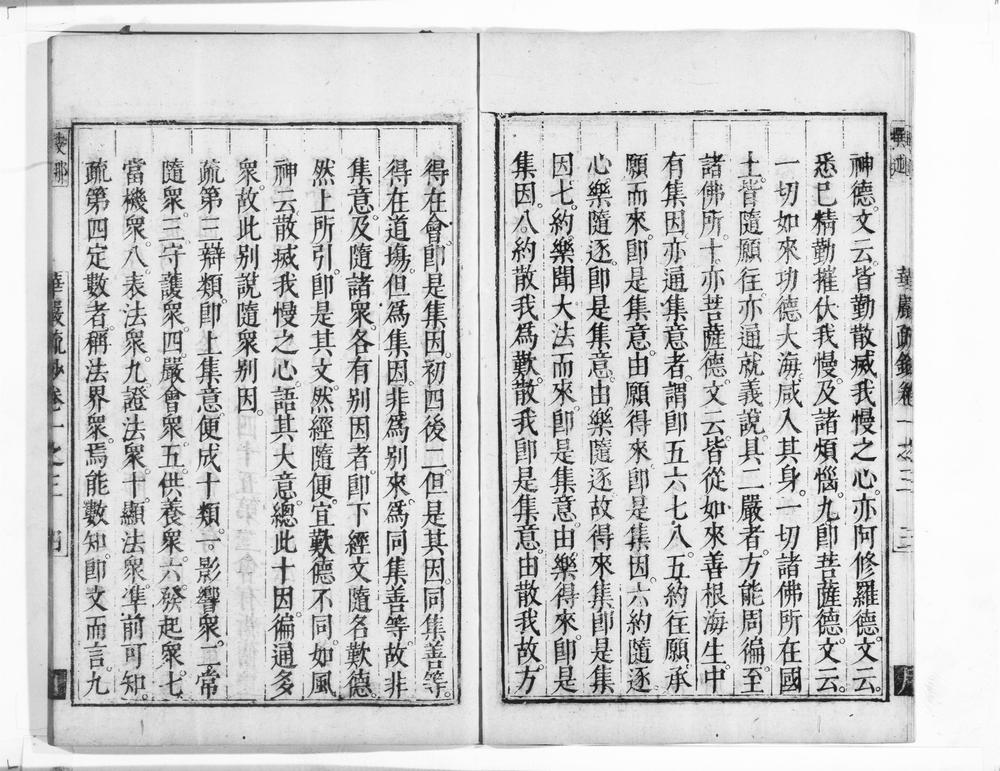 神德。文云。皆勤散滅我慢之心。亦阿修羅德。文云。
悉已精勤摧伏我慢。及諸煩惱。九即菩薩德。文云。
一切如來功德大海。咸入其身。一切諸佛所在國
土。皆隨願往。亦通就義說。具二嚴者。方能周徧至
諸佛所。十亦菩薩德。文云。皆從如來善根海生。中
有集因。亦通集意者。謂即五六七八。五約在願。承
願而來。即是集意。由願得來。即是集因。六約隨逐
心樂隨逐。即是集意。由樂隨逐。故得來集。即是集
因。七約樂聞大法而來。即是集意。由樂得來。即是
集因。八約散我為歎。散我即是集意。由散我故。方
得在會。即是集因。初四後二。但是其因。同集善等。
得在道場。但為集因。非為別來。為同集善等故。非
集意。及隨諸衆。各有別因者。即下經文。隨名歎德。
然上所引。即是其文。然經隨便宜。歎德不同。如風
神云散滅我慢之心。語其大意。總此十因。徧通多
衆。故此別說隨衆別因。
疏第三辯類。即上集意。便成十類。一影響衆。二常
隨衆。三守護衆。四嚴會衆。五供養衆。六發起衆。七
當機衆。八表法衆。九證法衆。十顯法衆。準前可知。
疏第四定數者。稱法界衆。焉能數知。即文而言。九
華嚴疏鈔卷一之三 三
華嚴疏鈔卷一之三 四